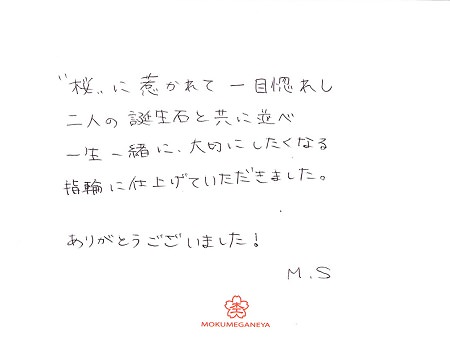 "桜"に惹かれて一目惚れし
二人の誕生石と共に並べ
一生一緒に、大切にしたくなる
指輪に仕上げていただきました。
ありがとうございました!
M.S
MOKUMEGANEYA